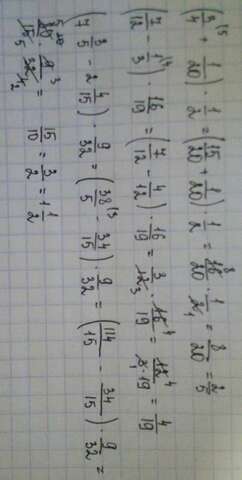 (3/4 \5 + 1/20) · 1/2 = (15/20 + 1/20) · 1/2 = 16 8/20 · 1/2 1 = 8/20 = 2/5
(7/12 - 1/3 \4) · 16/19 = (7/12 - 4/12) · 16/19 = 3/12 3 · 16 4/19 = 12 4/3 1 · 19 = 4/19
(7 3/5 - 2 4/15) · 9/32 = (38/5 \3 - 34/15) · 9/32 = (114/15 - 34/15) · 9/32 =
= 15/10 = 3/2 = 1 1/2